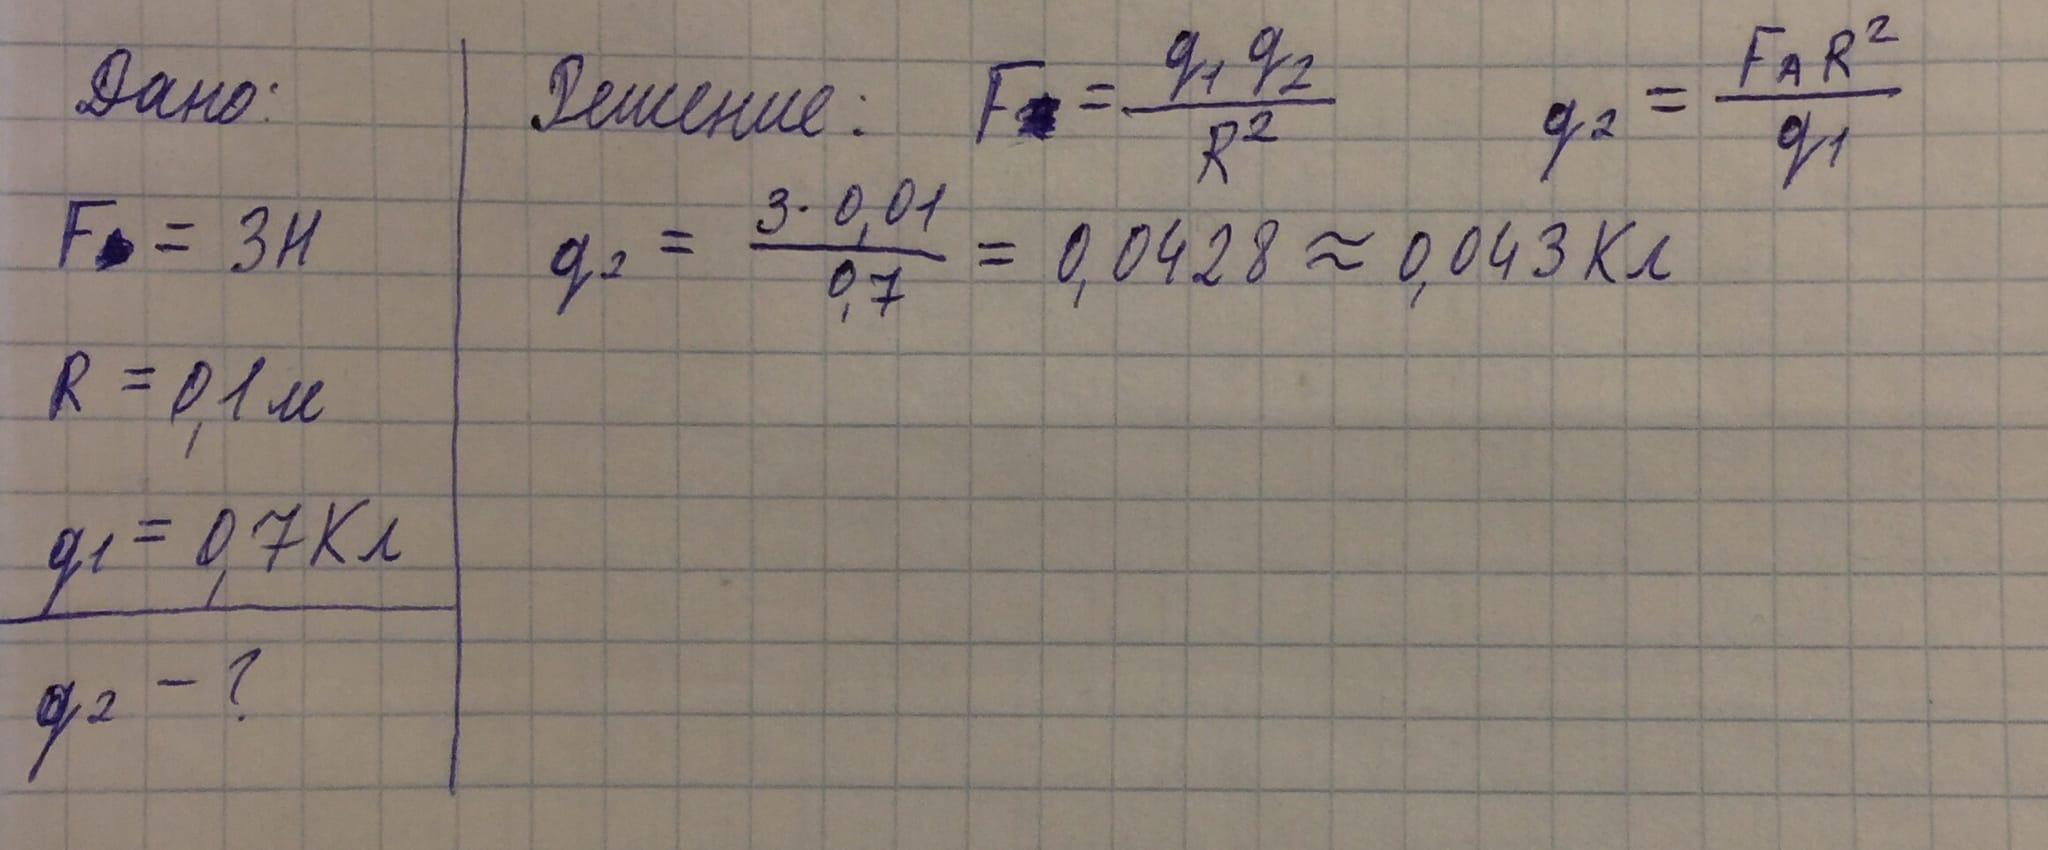 Дано:
F = 3Н
R = 0,1 м
q1 = 0,7 Кл
q2 - ?
Решение: F = q1 q2 / R² q2 = FA R² / q1
q2 = 3·0,01 / 0,7 = 0,0428 ≈ 0,043 Кл